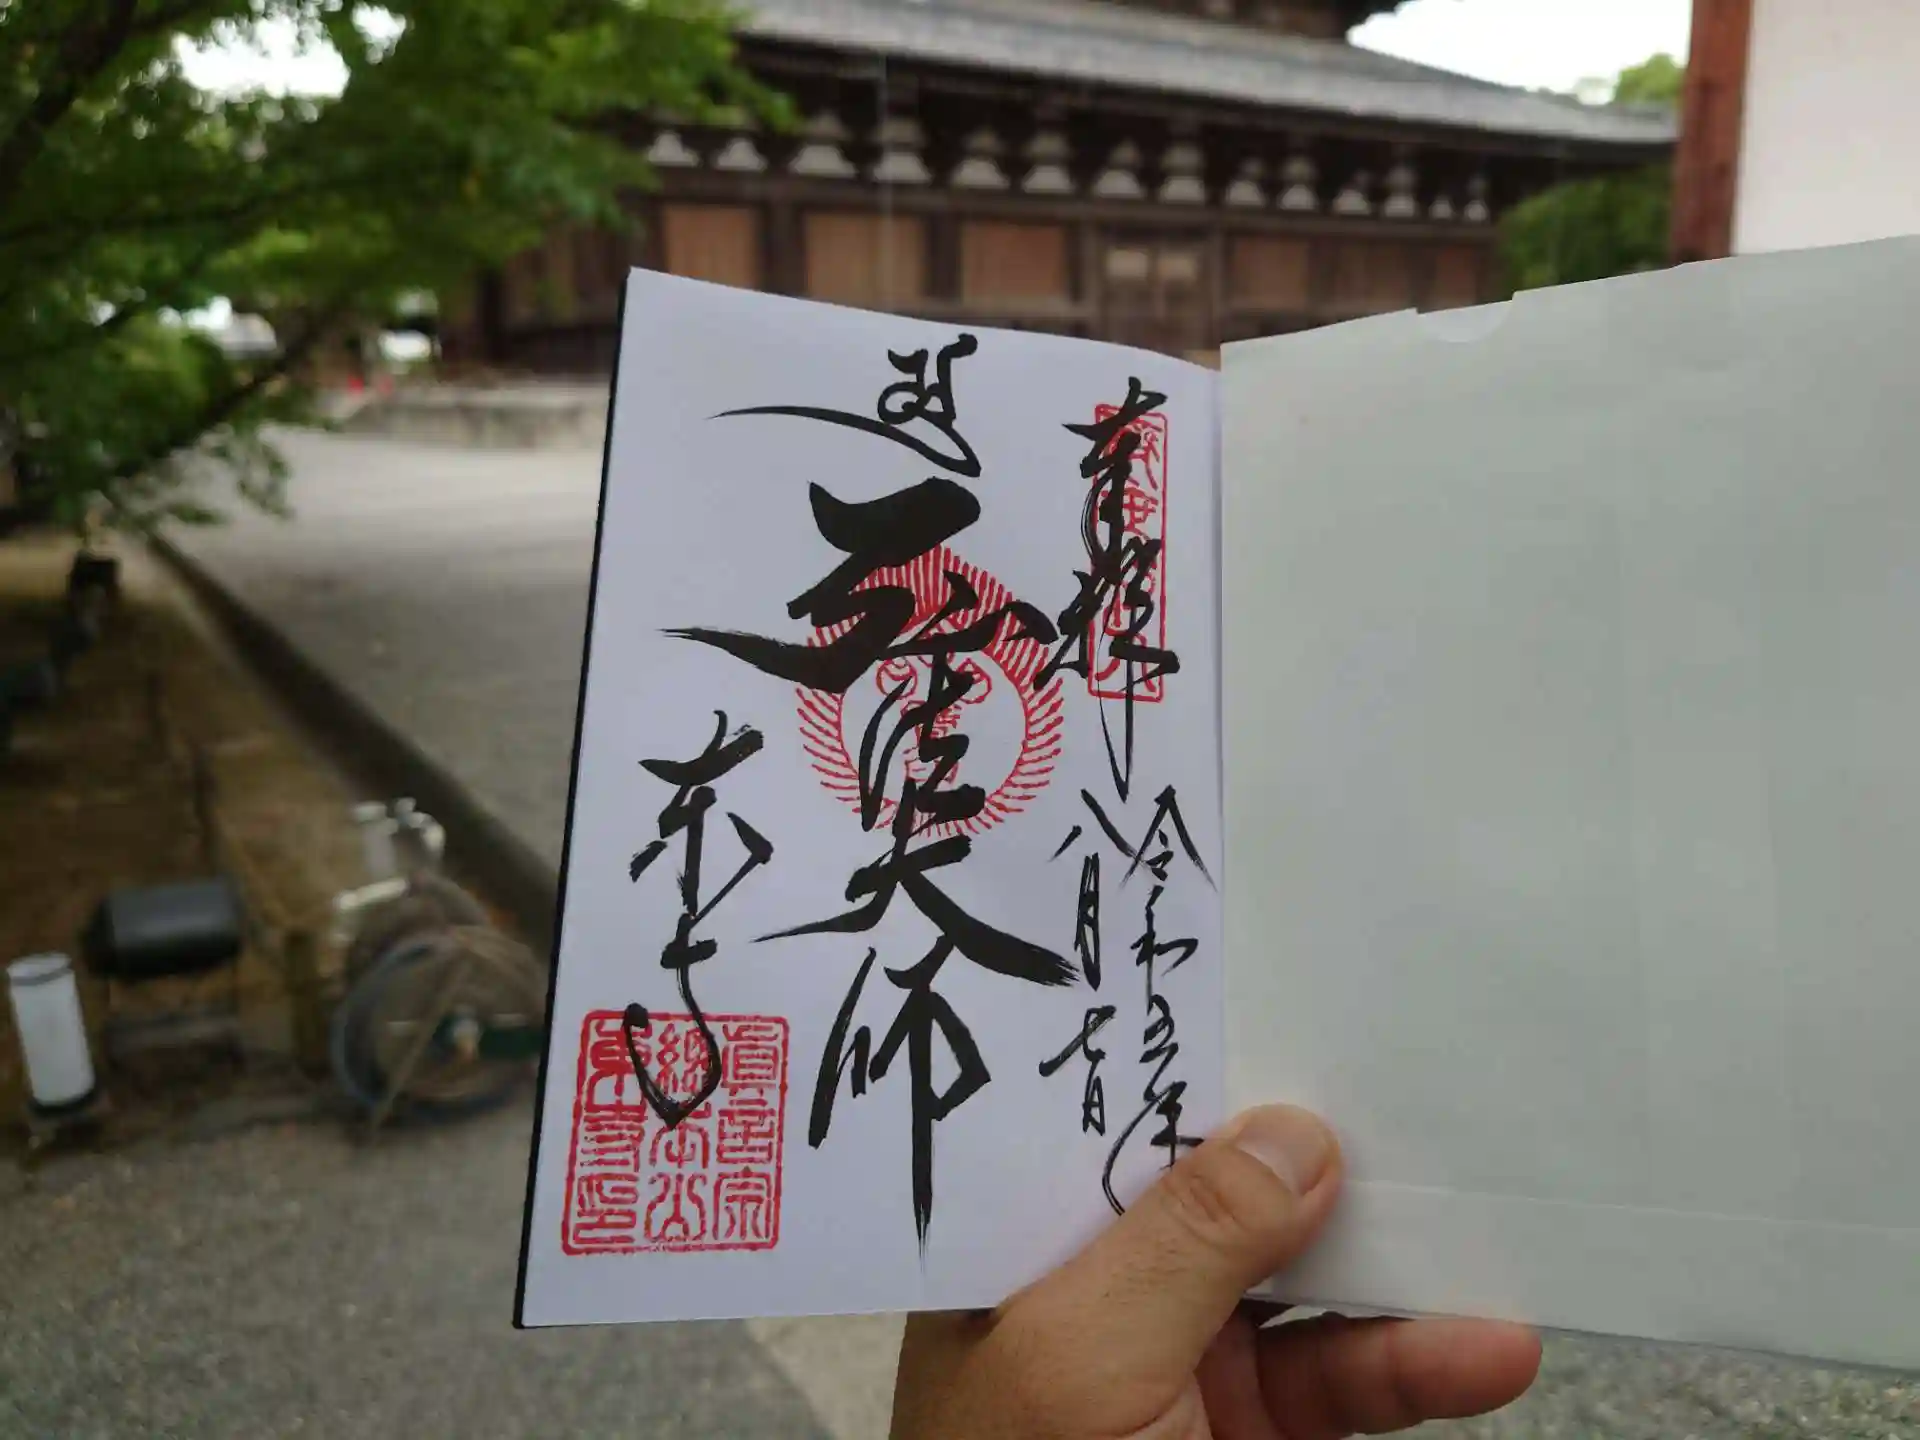 奉拝
令和五年
八月七日
弘法大師
東寺
眞言宗
總本山
東寺印